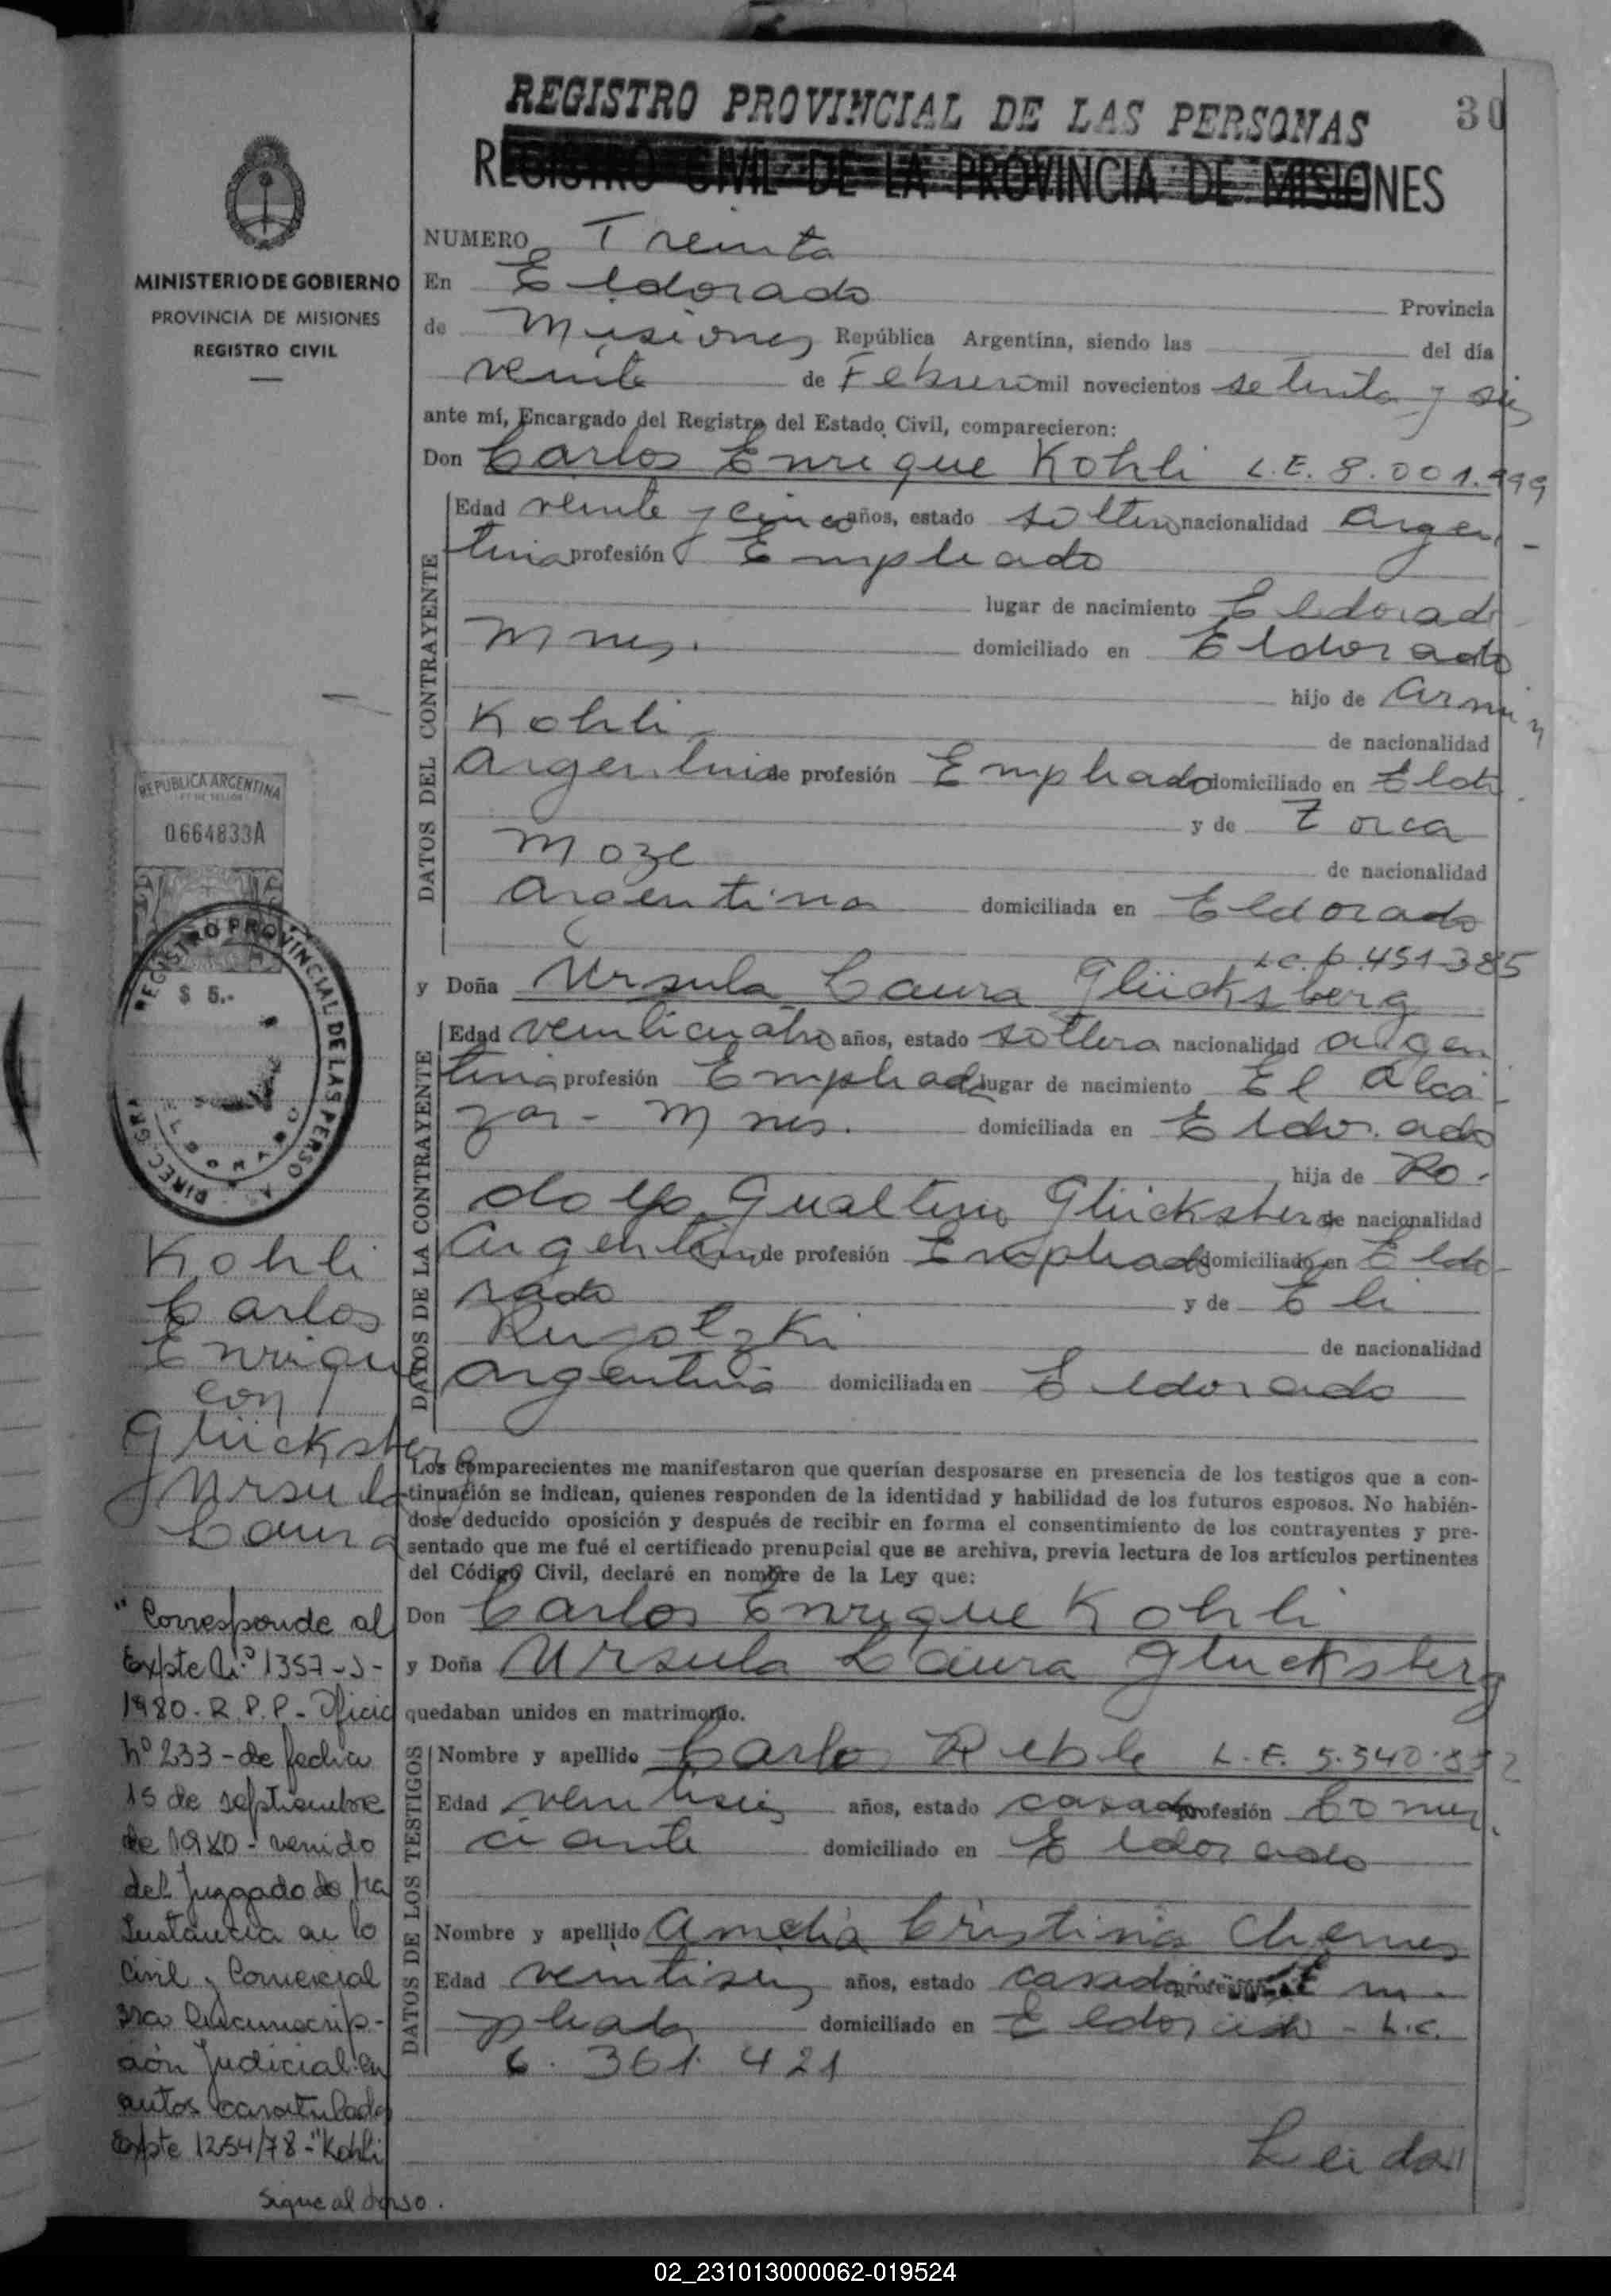 REGISTRO PROVINCIAL DE LAS PERSONAS
30
REGISTRO CIVIL DE LA PROVINCIA DE MISIONES
MINISTERIO DE GOBIERNO
PROVINCIA DE MISIONES
REGISTRO CIVIL
NUMERO Treinta
En Eldorado Provincia
de Misiones República Argentina, siendo las del día
veinte de Febrero mil novecientos setenta y seis
ante mí, Encargado del Registro del Estado Civil, comparecieron:
Don Carlos Enrique Kohli L.E. 8.001.999
DATOS DEL CONTRAYENTE
Edad veinte y cinco años, estado soltero nacionalidad Argen
tina profesión Empleado
lugar de nacimiento Eldorado
Mnes. domiciliado en Eldorado
hijo de Armin
Kohli de nacionalidad
Argentina de profesión Empleado domiciliado en Eldo
y de Zorca
Moze de nacionalidad
Argentina domiciliada en Eldorado
L.C. 6.451.385
y Doña Ursula Laura Glücksberg
DATOS DE LA CONTRAYENTE
Edad veinticuatro años, estado soltera nacionalidad argen
tina profesión Empleada lugar de nacimiento El Alcá
zar - Mnes. domiciliada en Eldorado
hija de Ro-
dolfo Gualterio Glücksberg de nacionalidad
Argentina de profesión Empleado domiciliado en Eldo-
rado y de Eli
de nacionalidad
argentina domiciliada en Eldorado
Los comparecientes me manifestaron que querían desposarse en presencia de los testigos que a con-
tinuación se indican, quienes responden de la identidad y habilidad de los futuros esposos. No habién-
dose deducido oposición y después de recibir en forma el consentimiento de los contrayentes y pre-
sentado que me fué el certificado prenupcial que se archiva, previa lectura de los artículos pertinentes
del Código Civil, declaré en nombre de la Ley que:
Don Carlos Enrique Kohli
y Doña Ursula Laura Glucksberg
quedaban unidos en matrimonio.
DATOS DE LOS TESTIGOS
Nombre y apellido Carlos Reble L.E. 5.540.
Edad veintiseis años, estado casado profesión Comer
ciante domiciliado en Eldorado
Nombre y apellido Amelia Cristina Chemes
Edad veintiseis años, estado casada profesión Em-
pleada domiciliado en Eldorado - L.C.
6.361.421
Leida
REPUBLICA ARGENTINA
0664833A
$ 5.-
REGISTRO PROVINCIAL DE LAS PERSONAS
DIREC. GRAL.
ELDORADO
Kohli
Carlos
Enrique
con
Glücksberg
Ursula
Laura
"Corresponde al
Expte N.º 1357-J-
1980-R.P.P.-Oficio
nº 233-de fecha
15 de septiembre
de 1980-venido
del Juzgado de 1ra
Instancia en lo
Civil y Comercial
3ra Circunscrip-
ción Judicial en
autos caratulados
Expte 1254/78-"Kohli
Sigue al dorso.
02_231013000062-019524